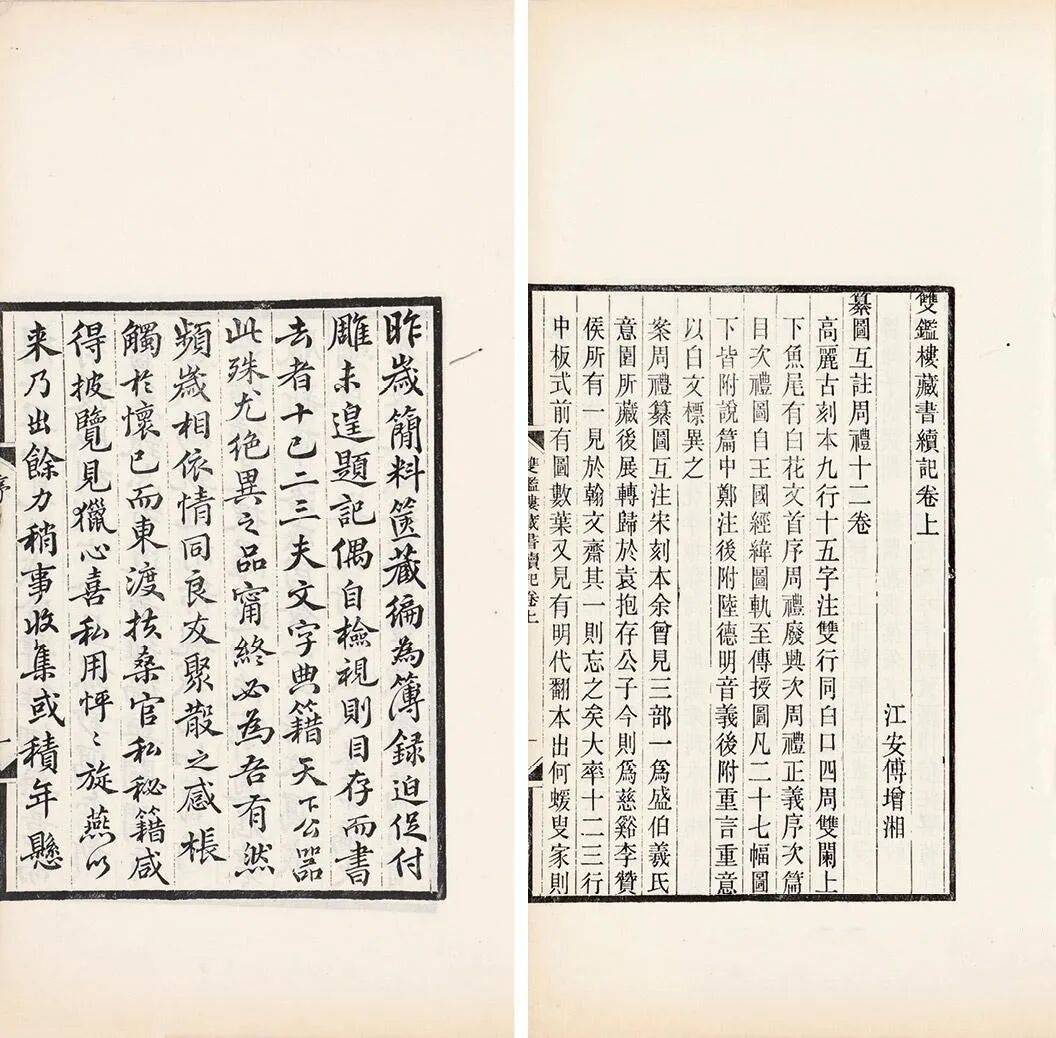 昨歲簡料篋藏編為簿録迫促付
雕未遑題記偶自檢視則目存而書
去者十已二三夫文字典籍天下公器
此殊尤絶異之品甯終必為吾有然
頻歲相依情同良友聚散之感棖
觸於懷已而東渡扶桑官私秘籍咸
得披覽見獵心喜私用怦〻旋燕以
来乃出餘力稍事收集或積年懸
序
一
雙鑑樓藏書續記卷上
江安傅增湘
纂圖互註周禮十二卷
高麗古刻本九行十五字注雙行同白口四周雙闌上
下魚尾有白花文首序周禮廢興次周禮正義序次篇
目次禮圖自王國經緯圖軌至傳授圖凡二十七幅圖
下皆附說篇中鄭注後附陸德明音義後附重言重意
以白文標異之
案周禮纂圖互注宋刻本余曾見三部一爲盛伯羲氏
意園所藏後展轉歸於袁抱存公子今則爲慈谿李贊
侯所有一見於翰文齋其一則忘之矣大率十二三行
中板式前有圖數葉又見有明代翻本出何蝯叟家則
雙鑑樓藏書續記卷上